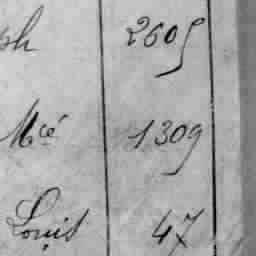 ph 2605
Mcé 1309
Louis 47